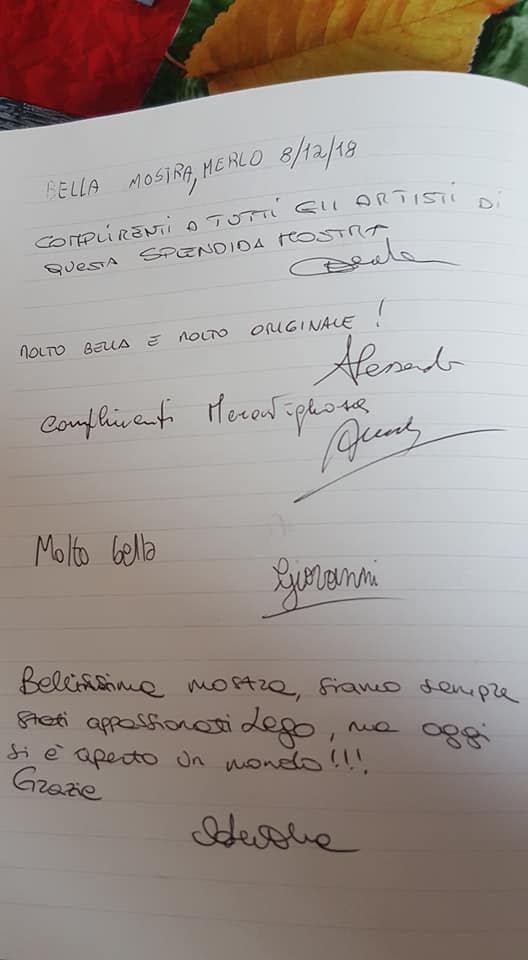 BELLA MOSTRA, MERLO 8/12/18
COMPLIMENTI A TUTTI GLI ARTISTI DI
QUESTA SPLENDIDA MOSTRA
MOLTO BELLA E MOLTO ORIGINALE!
Alessandr
Complimenti Meravigliosa
Molto bella
Giovanni
Bellissima mostra, siamo sempre
stati appassionati Lego, ma oggi
si è aperto un mondo!!!
Grazie